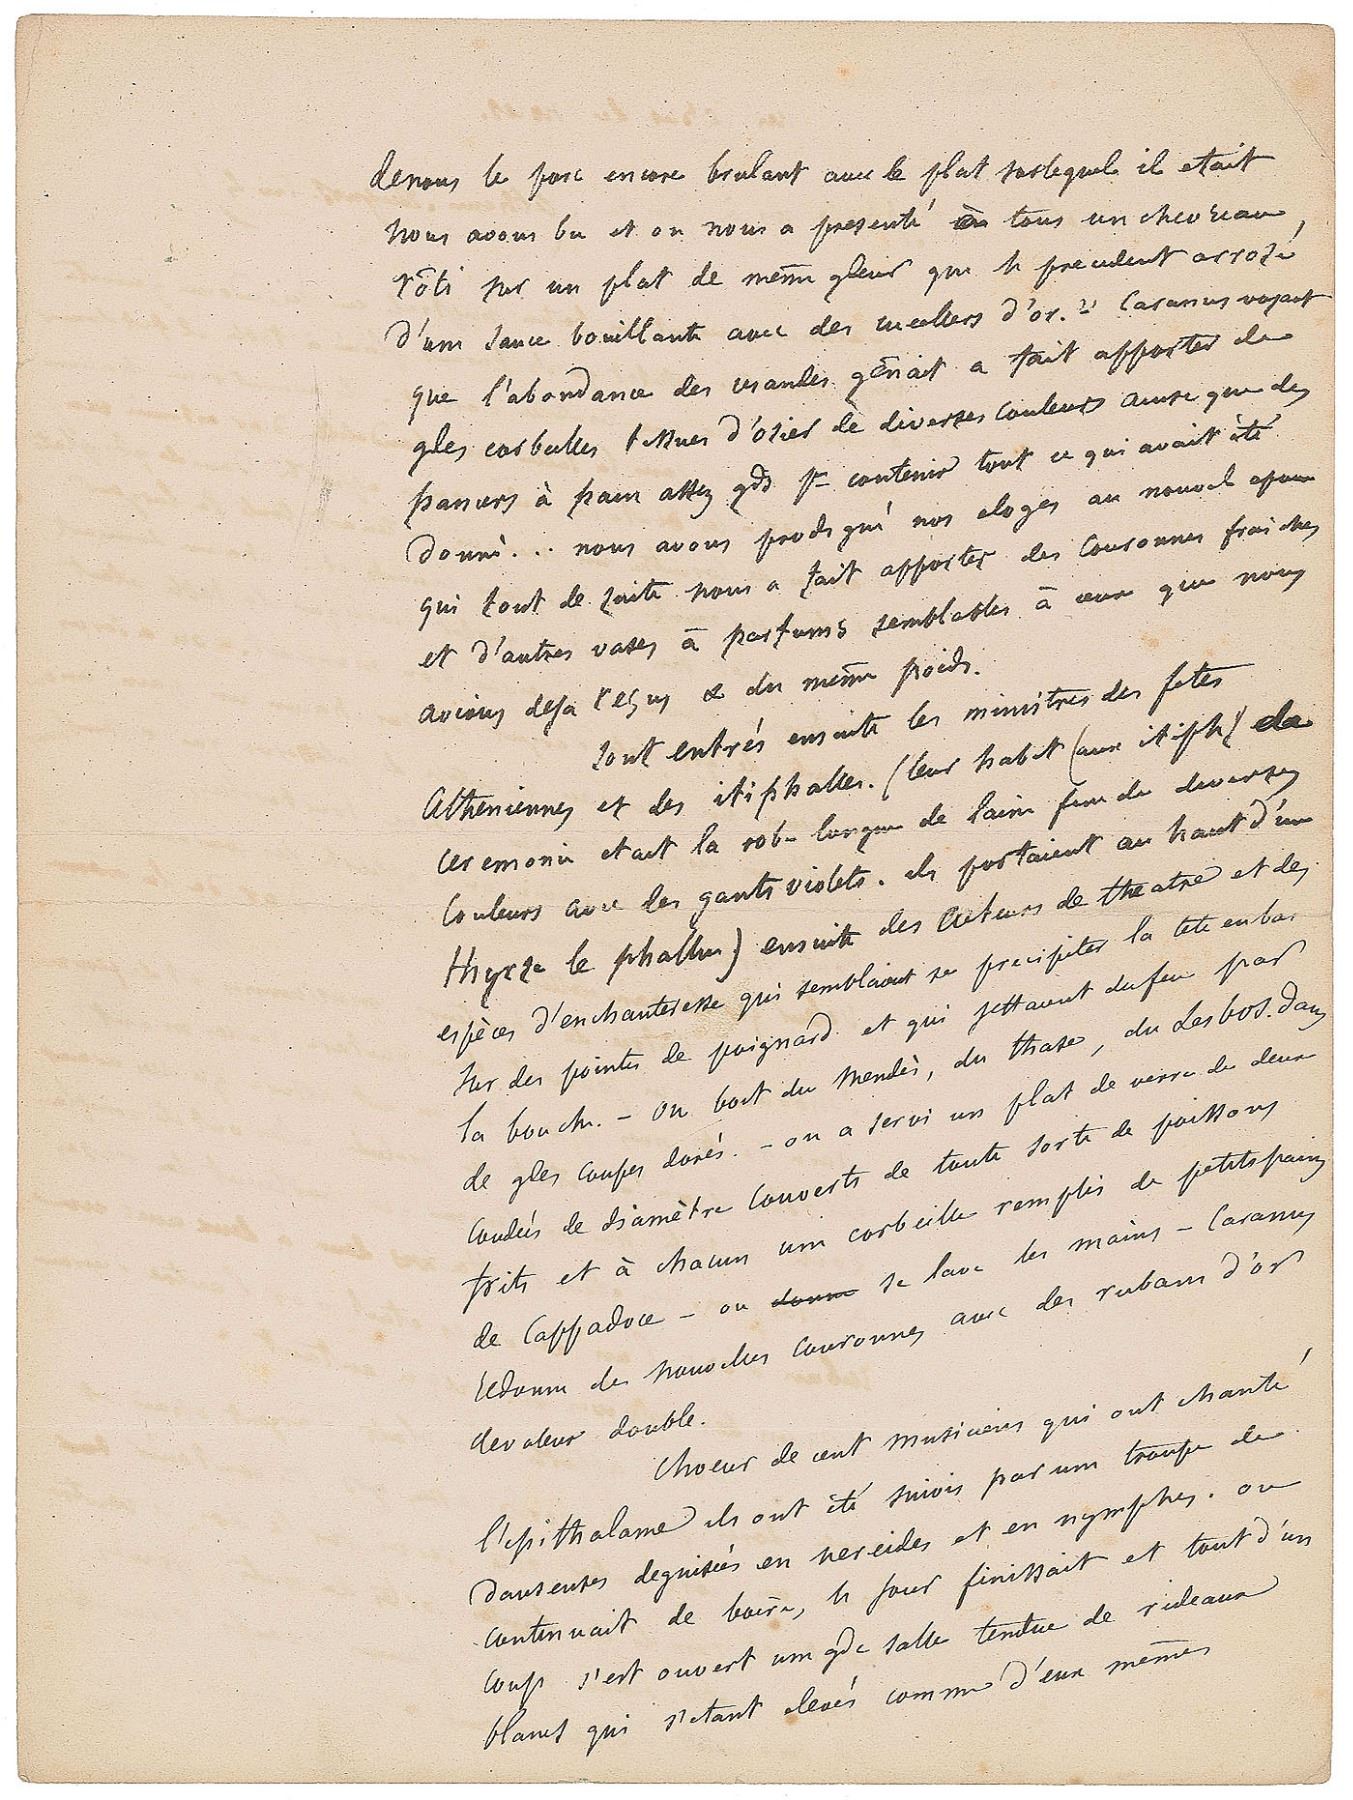 denous le porc encore brulant avec le plat surlequel il etait
nous avons bu et on nous a presenté à tous un chevreau,
rôti sur un plat de même gleur que le precedent arrozé
d'une sauce bouillante avec des cuellers d'or. Caranus voyant
que l'abondance des viandes gênait a fait apporter de
gdes corbeilles tissues d'ozier de diverses couleurs ainsi que des
paniers à pain assez gds pr contenir tout ce qui avait été
donné... nous avons prodigué nos eloges au nouvel epoux
qui tout de suite nous a fait apporter des couronnes fraiches
et d'autres vases à parfums semblables à ceux que nous
avions deja reçus & du même poids.
sont entrés ensuite les ministres des fetes
Atheniennes et des itiphalles. (leur habit (aux itiph) de
ceremonie etait la robe longue de laine fine de diverses
couleurs avec des gants violets. ils portaient au haut d'un
thyrse le phallus) ensuite des acteurs de theatre et des
espèces d'enchanteresse qui semblaient se precipiter la tete enbas
sur des pointes de poignard et qui jettaient dufeu par
la bouche. - on boit du Mendès, du thase, du Lesbos. dans
de gdes coupes dorés. - on a servi un plat de verre de deux
coudées de diamètre couverts de toute sorte de poissons
frits et à chacun une corbeille remplis de petitspains
de Cappadoce - on donne se lave les mains - Caranus
redonne de nouvelles couronnes avec des rubans d'or
devaleur double.
choeur de cent musiciens qui ont chanté
l'epithalame ils ont été suivis par une troupe de
danseuses deguisées en nereides et en nymphes. on
continuait de boire, le jour finissait et tout d'un
coup s'est ouvert une gde salle tendue de rideaux
blancs qui s'etant elevés comme d'eux mêmes